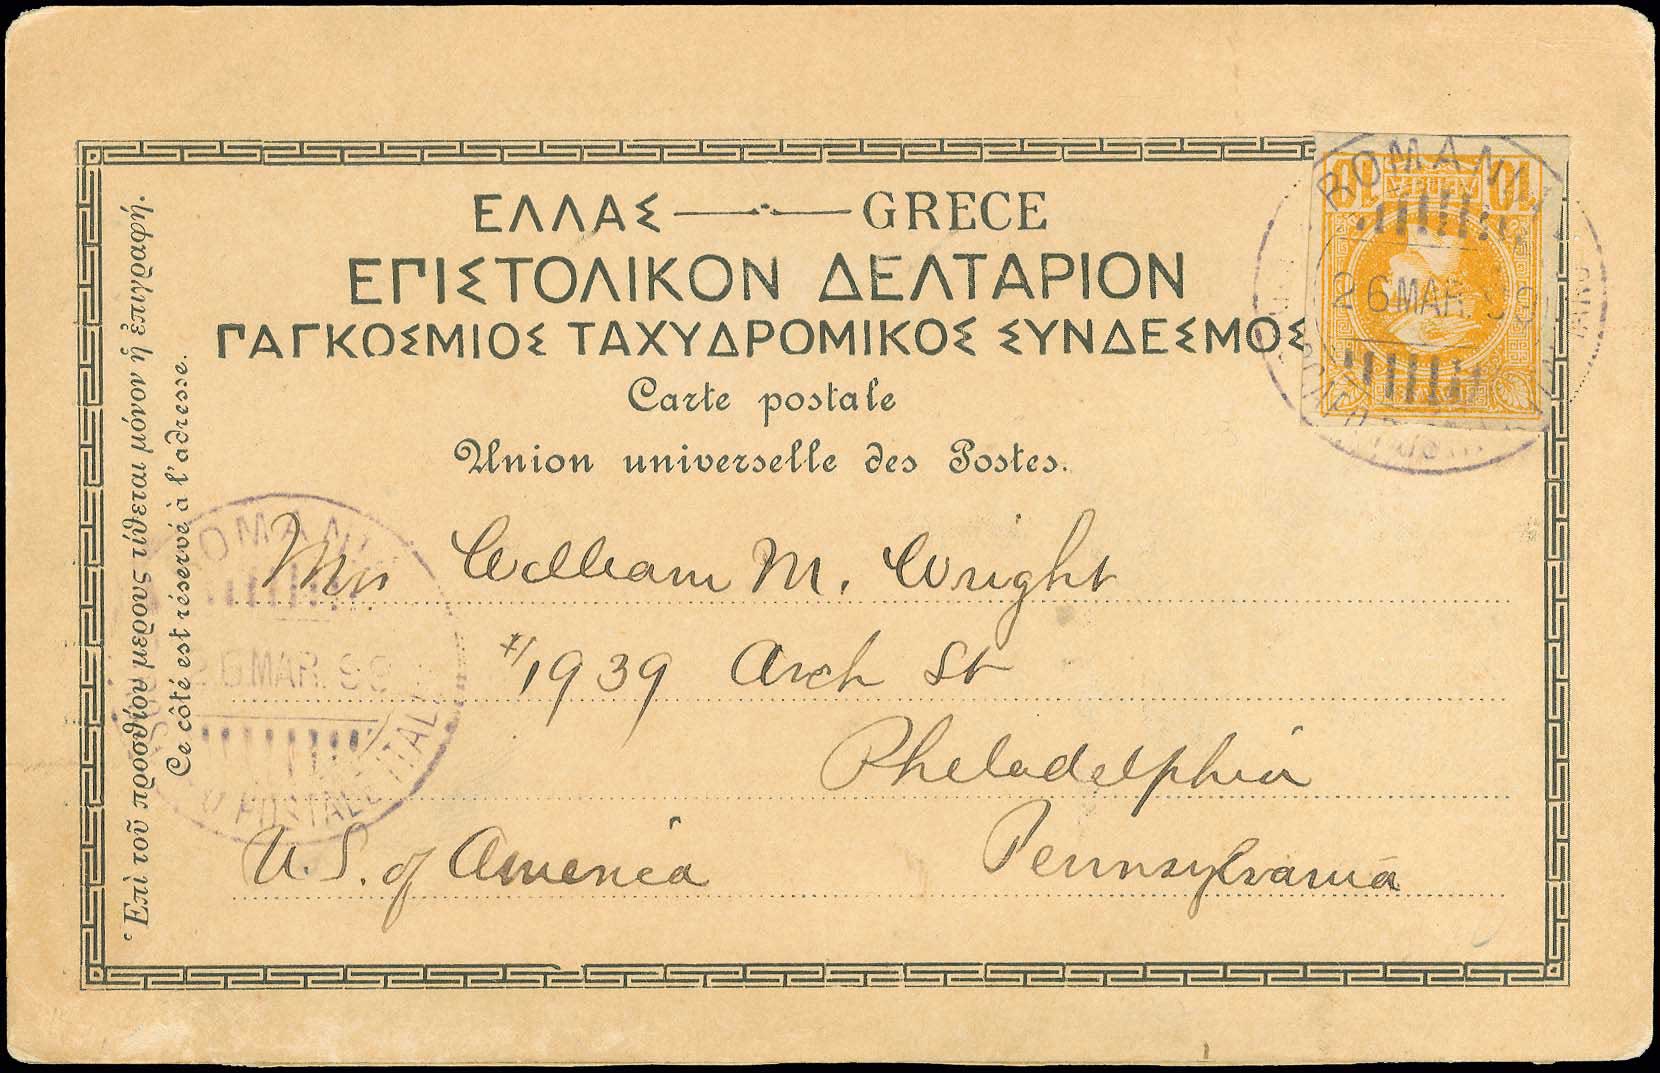 ΕΛΛΑΣ — GRÈCE
ΕΠΙΣΤΟΛΙΚΟΝ ΔΕΛΤΑΡΙΟΝ
ΠΑΓΚΟΣΜΙΟΣ ΤΑΧΥΔΡΟΜΙΚΟΣ ΣΥΝΔΕΣΜΟΣ
Carte postale
Union universelle des Postes.
Ἐπὶ τοῦ προσθίου μερους τίθεται μόνον ἡ ἐπιγραφή.
Ce côté est réservé à l'adresse.
10 10
ROMANIA
26 MAR. 99
ROMANIA
26 MAR. 99
POSTAL
William M. Wright
#1939 Arch St
Philadelphia
U.S. of America Pennsylvania